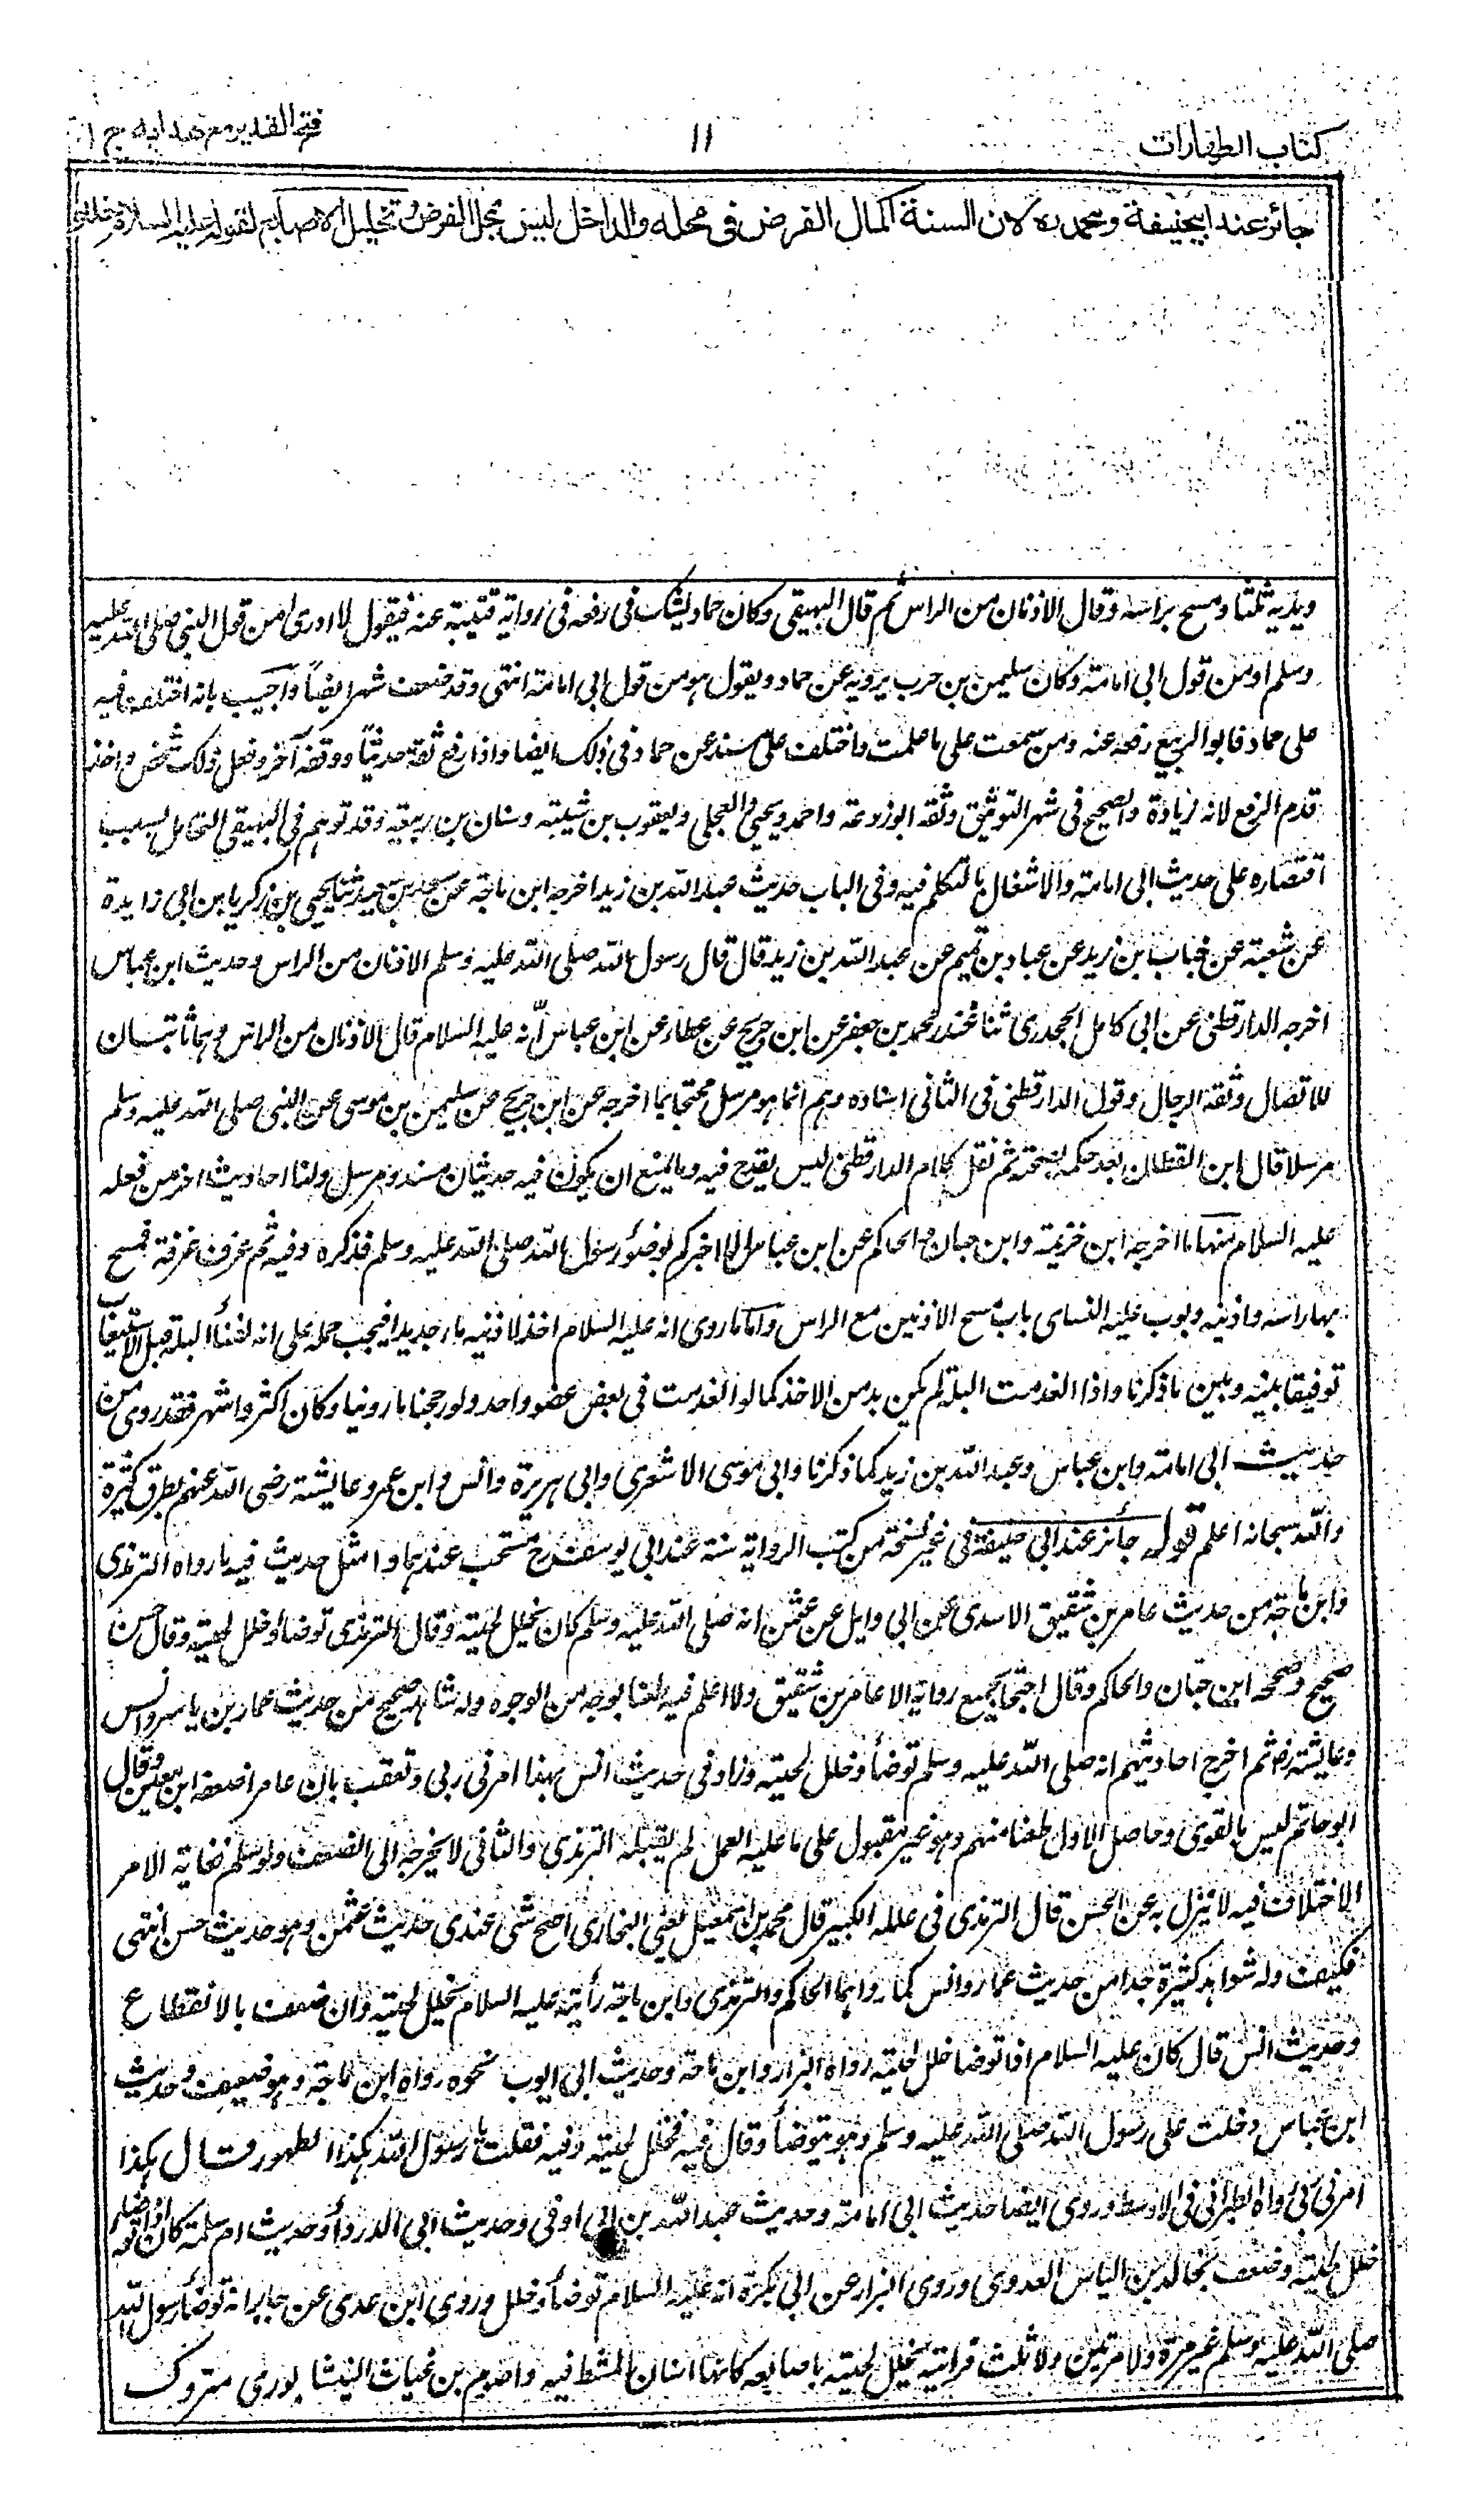 كتاب الطهارات
١١
فتح القدير مع هدايه ج ١
جائز عند ابيحنيفة ومحمد ره لان السنة اكمال الفرض فى محله والداخل ليس بمحل الفرض و تخليل الاصابع لقوله عليه السلام خللوا
ويديه ثلثا ومسح براسه وقال الاذنان من الراس ثم قال البيهقي وكان حماد يشك فى رفعه فى رواية قتيبة عنه فيقول لا ادرى امن قول النبى صلى الله عليه
وسلم او من قول ابى امامة وكان سليمن بن حرب يرويه عن حماد ويقول هو من قول ابى امامة انتهى وقد ضعف شهر ايضاً واجيب بانه اختلف فيه
على حماد فابو الربيع رفعه عنه ومن سمعت على ما علمت واختلف على مسدد عن حماد فى ذلك ايضا واذا رفع ثقة حديثاً ووقفه آخر وفعل ذلك شخص واحد
قدم الرفع لانه زيادة والصحيح فى شهر التوثيق وثقه ابو زرعة واحمد ويحيى والعجلى ويعقوب بن شيبة وسنان بن ربيعة وقد توهم فى البيهقى التحامل بسبب
اقتصاره على حديث ابى امامة والاشتغال بالتكلم فيه وفى الباب حديث عبد الله بن زيد اخرجه ابن ماجة عن سويد بن سعيد ثنا يحيى بن زكريا بن ابى زايدة
عن شعبة عن خباب ابن زيد عن عباد بن تميم عن عبد الله بن زيد قال قال رسول الله صلى الله عليه وسلم الاذنان من الراس وحديث ابن عباس
اخرجه الدارقطنى عن ابى كامل الجحدرى ثنا غندر محمد بن جعفر عن ابن جريج عن عطاء عن ابن عباس انه عليه السلام قال الاذنان من الراس وهما ثابتان
للاتصال وثقة الرجال وقول الدارقطنى فى الثانى اسناده وهم انما هو مرسل محتجا بما اخرجه عن ابن جريج عن سليمن بن موسى عن النبى صلى الله عليه وسلم
مرسلا قال ابن القطان بعد حكمه بصحته ثم نقل كلام الدارقطنى ليس يقدح فيه وما يمنع ان يكون فيه حديثان مسند ومرسل ولنا احاديث اخر من فعله
عليه السلام منها ما اخرجه ابن خزيمة وابن حبان والحاكم عن ابن عباس الا اخبركم بوضوء رسول الله صلى الله عليه وسلم فذكره وفيه ثم غرف غرفة فمسح
بها راسه واذنيه وبوب عليه النساى باب مسح الاذنين مع الراس واما ما روى انه عليه السلام اخذ لاذنيه ماء جديدا فيجب حمله على انه لفناء البلة قبل الاستيعاب
توفيقا بينه وبين ما ذكرنا واذا انعدمت البلة لم يكن بد من الاخذ كما لو انعدمت فى بعض عضو واحد ولو رجحنا ما روينا وكان اكثر واشهر فقد روى من
حديث ابى امامة وابن عباس وعبد الله بن زيد كما ذكرنا وابى موسى الاشعرى وابى هريرة وانس وابن عمر وعايشة رضى الله عنهم بطرق كثيرة
والله سبحانه اعلم قوله جائز عند ابى حنيفة فى غير نسخة من كتب الرواية سنة عند ابى يوسف رح مستحب عندهما وامثل حديث فيه ما رواه الترمذى
وابن ماجة من حديث عامر بن شقيق الاسدى عن ابى وايل عن عثمن انه صلى الله عليه وسلم كان يخلل لحيته وقال الترمذى توضأ وخلل لحيته وقال حسن
صحيح وصححه ابن حبان والحاكم وقال احتجا بجميع رواته الا عامر بن شقيق ولا اعلم فيه طعنا بوجه من الوجوه وله شاهد صحيح من حديث عمار بن ياسر وانس
وعايشة رض ثم اخرج احاديثهم انه صلى الله عليه وسلم توضأ وخلل لحيته وزاد فى حديث انس بهذا امرنى ربى وتعقب بان عامرا ضعفه ابن معين وقال
ابو حاتم ليس بالقوى وحاصل الاول طعنا منهم وهو غير مقبول على ما عليه العمل لم يقبله الترمذى والثانى لا يخرجه الى الضعف ولو سلم فغاية الامر
الاختلاف فيه لا ينزل به عن الحسن قال الترمذى فى علله الكبير قال محمد بن اسمعيل يعنى البخارى اصح شئ عندى حديث عثمن وهو حديث حسن انتهى
فكيف وله شواهد كثيرة جدا من حديث عمار وانس كما رواهما الحاكم والترمذى وابن ماجة رأيته عليه السلام يخلل لحيته وان ضعف بالانقطاع
وحديث انس قال كان عليه السلام اذا توضأ خلل لحيته رواه البزار وابن ماجة وحديث ابى ايوب نحوه رواه ابن ماجة وهو ضعيف وحديث
ابن عباس دخلت على رسول الله صلى الله عليه وسلم وهو يتوضأ وقال فيه فخلل لحيته وفيه فقلت يا رسول الله هكذا الطهور قال هكذا
امرنى ربى رواه الطبرانى فى الاوسط وروى ايضا حديث ابى امامة وحديث عبد الله بن ابى اوفى وحديث ابى الدرداء وحديث ام سلمة كان صلعم اذا توضأ
خلل لحيته وضعف بخالد بن الياس العدوى وروى البزار عن ابى بكرة انه عليه السلام توضأ وخلل وروى ابن عدى عن جابر انه توضأ رسول الله
صلى الله عليه وسلم غير مرة ولا مرتين ولا ثلث فرايته يخلل لحيته باصابعه كانها اسنان المشط فيه واصرم بن غياث النيشابورى متروك